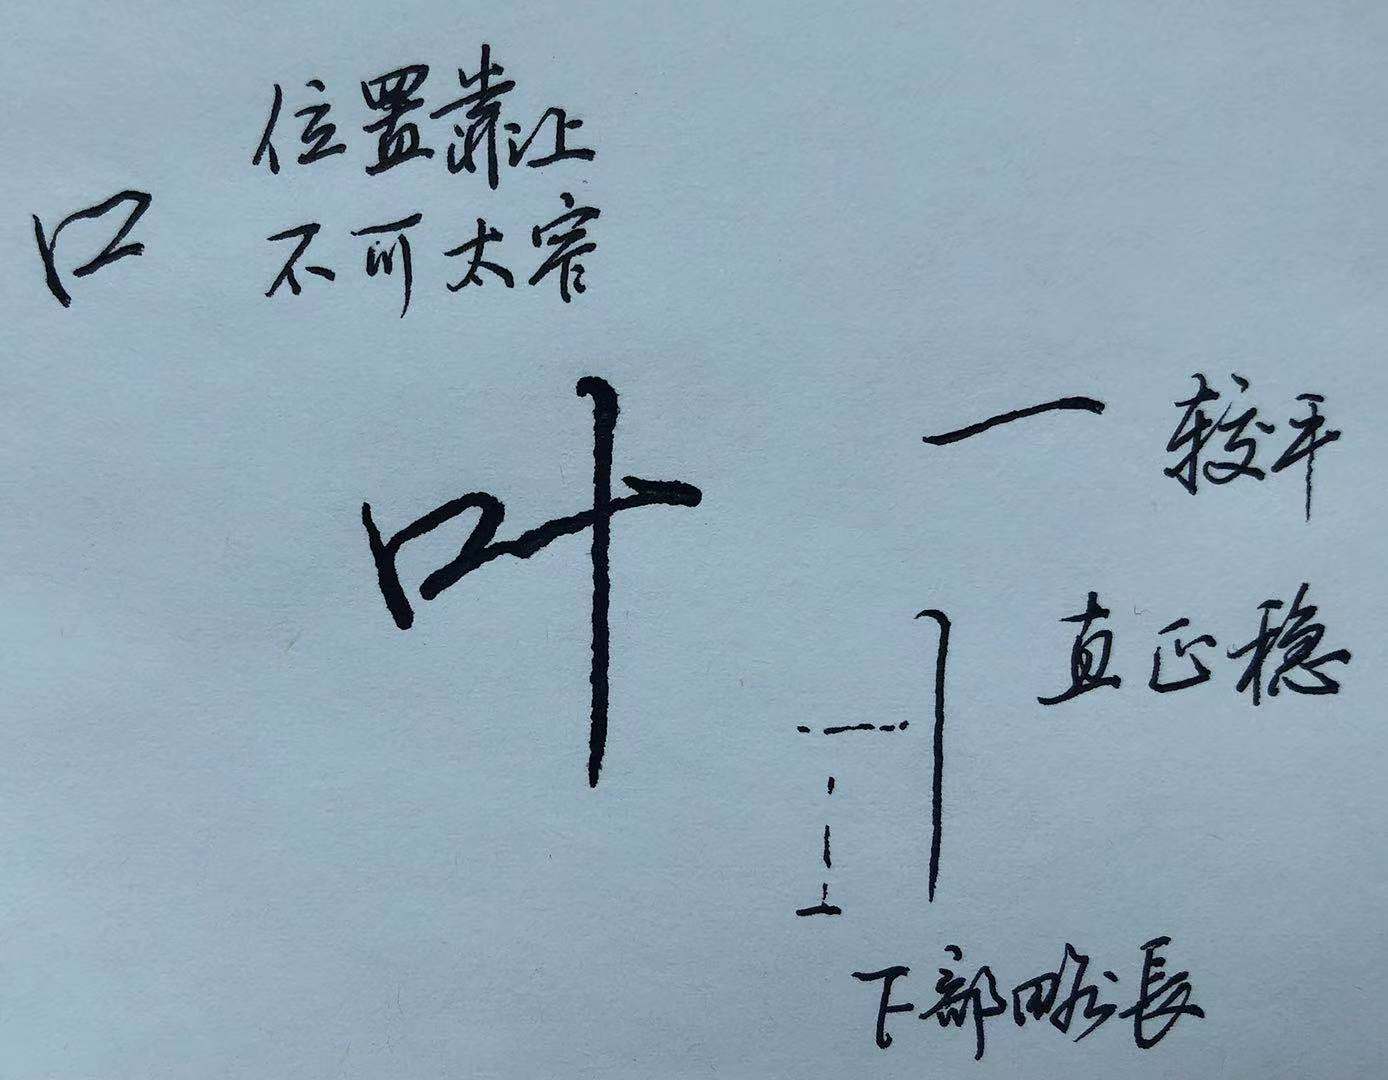 位置靠上
口
不可太窄
叶
一 较平
直正稳
下部略長